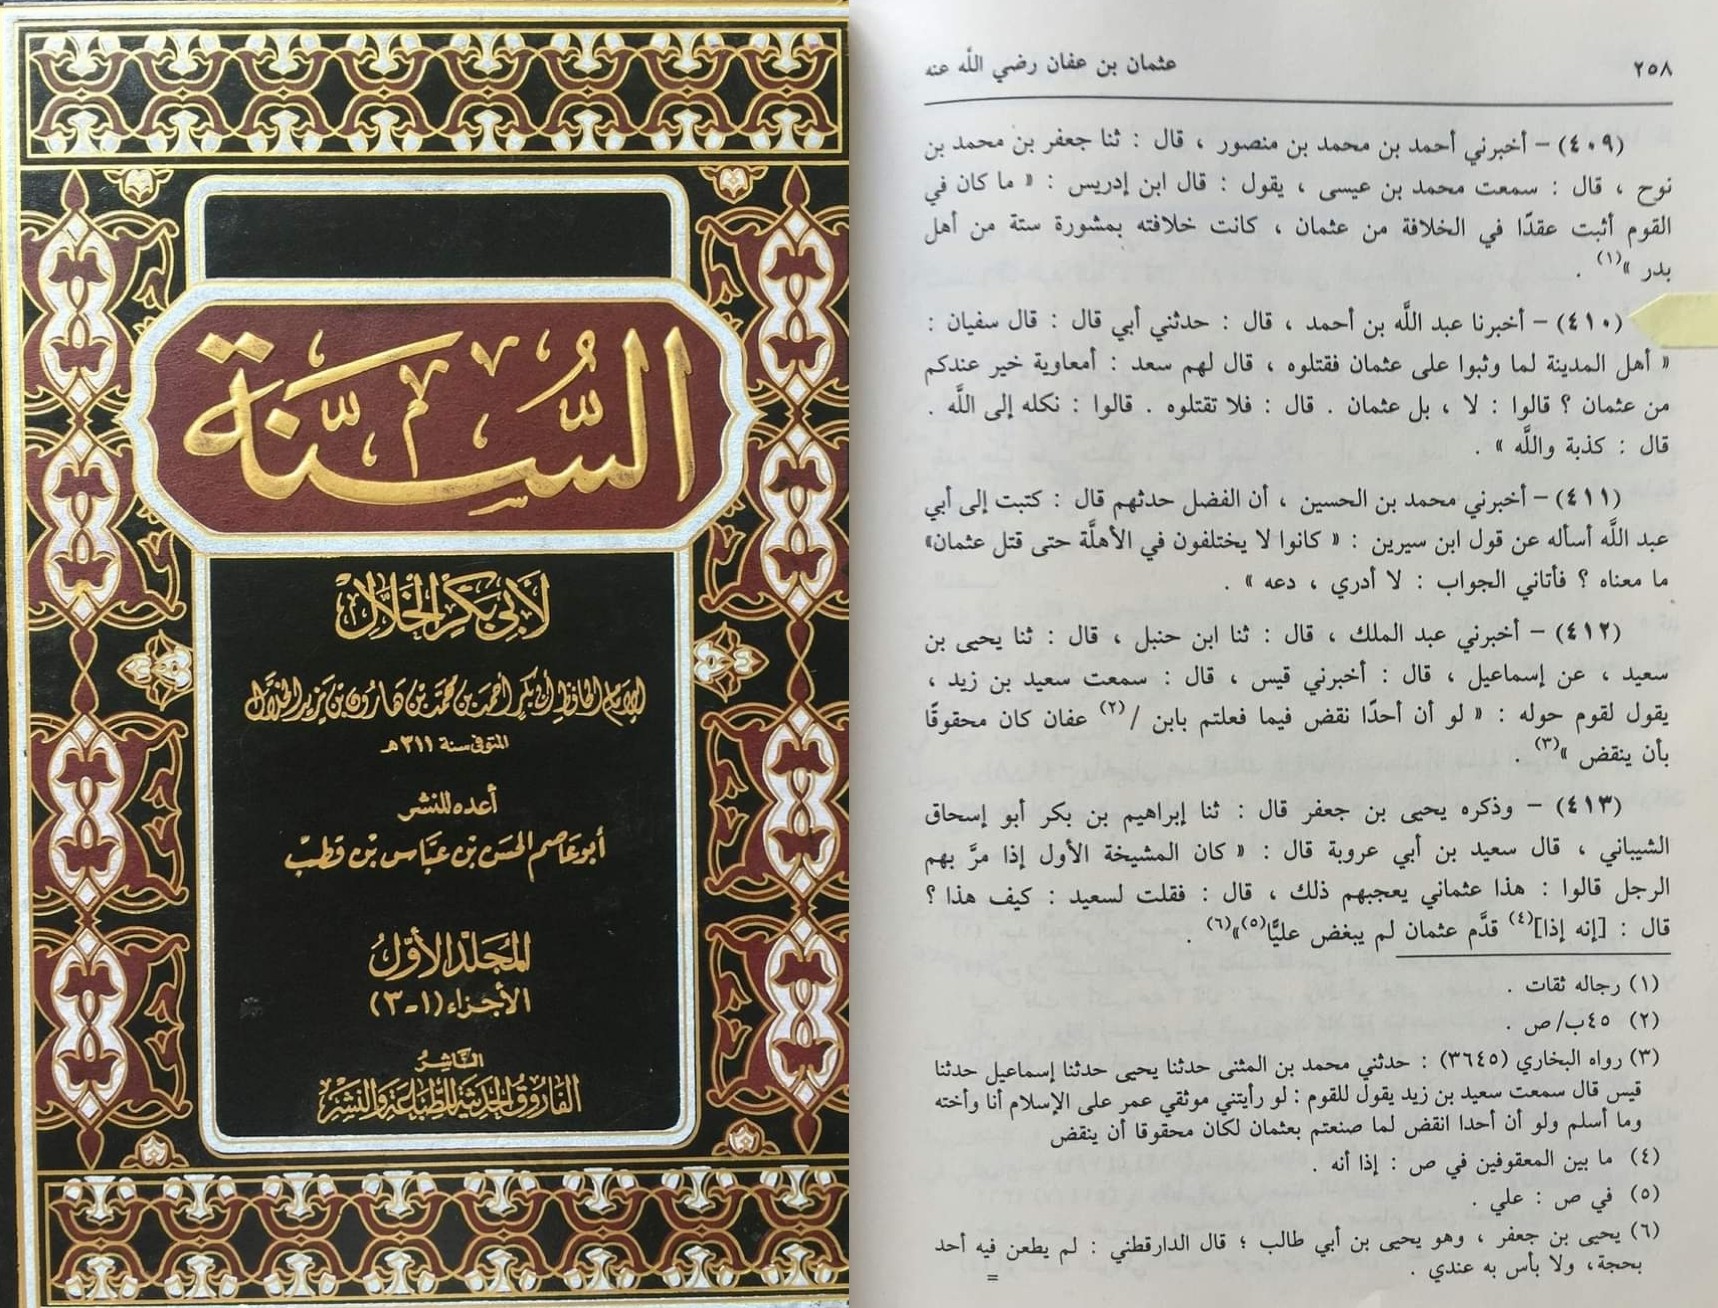 السُّنَّة
لأبي بكر الخلال
الإمام الحافظ أبي بكر أحمد بن محمد بن هارون بن يزيد الخلال
المتوفى سنة ٣١١ هـ
أعده للنشر
أبو عاصم الحسن بن عباس بن قطب
المجلد الأول
الأجزاء (١-٣)
الناشر
الفاروق الحديثة للطباعة والنشر
٢٥٨
عثمان بن عفان رضي اللَّه عنه
(٤٠٩) – أخبرني أحمد بن محمد بن منصور ، قال : ثنا جعفر بن محمد بن
نوح ، قال : سمعت محمد بن عيسى ، يقول : قال ابن إدريس : « ما كان في
القوم أثبت عقدًا في الخلافة من عثمان ، كانت خلافته بمشورة ستة من أهل
بدر »(١) .
(٤١٠) – أخبرنا عبد اللَّه بن أحمد ، قال : حدثني أبي قال : قال سفيان :
« أهل المدينة لما وثبوا على عثمان فقتلوه ، قال لهم سعد : أمعاوية خير عندكم
من عثمان ؟ قالوا : لا ، بل عثمان . قال : فلا تقتلوه . قالوا : نكله إلى اللَّه .
قال : كذبة واللَّه » .
(٤١١) – أخبرني محمد بن الحسين ، أن الفضل حدثهم قال : كتبت إلى أبي
عبد اللَّه أسأله عن قول ابن سيرين : « كانوا لا يختلفون في الأهلَّة حتى قتل عثمان»
ما معناه ؟ فأتاني الجواب : لا أدري ، دعه » .
(٤١٢) – أخبرني عبد الملك ، قال : ثنا ابن حنبل ، قال : ثنا يحيى بن
سعيد ، عن إسماعيل ، قال : أخبرني قيس ، قال : سمعت سعيد بن زيد ،
يقول لقوم حوله : « لو أن أحدًا نقض فيما فعلتم بابن /(٢) عفان كان محقوقًا
بأن ينقض »(٣) .
(٤١٣) – وذكره يحيى بن جعفر قال : ثنا إبراهيم بن بكر أبو إسحاق
الشيباني ، قال سعيد بن أبي عروبة قال : « كان المشيخة الأول إذا مرَّ بهم
الرجل قالوا : هذا عثماني يعجبهم ذلك ، قال : فقلت لسعيد : كيف هذا ؟
قال : [إنه إذا](٤) قدَّم عثمان لم يبغض عليًّا(٥)»(٦) .
(١) رجاله ثقات .
(٢) ٤٥ب/ص .
(٣) رواه البخاري (٣٦٤٥) : حدثني محمد بن المثنى حدثنا يحيى حدثنا إسماعيل حدثنا
قيس قال سمعت سعيد بن زيد يقول للقوم : لو رأيتني موثقي عمر على الإسلام أنا وأخته
وما أسلم ولو أن أحدا انقض لما صنعتم بعثمان لكان محقوقا أن ينقض
(٤) ما بين المعقوفين في ص : إذا أنه .
(٥) في ص : علي .
(٦) يحيى بن جعفر ، وهو يحيى بن أبي طالب ؛ قال الدارقطني : لم يطعن فيه أحد
بحجة، ولا بأس به عندي .
=